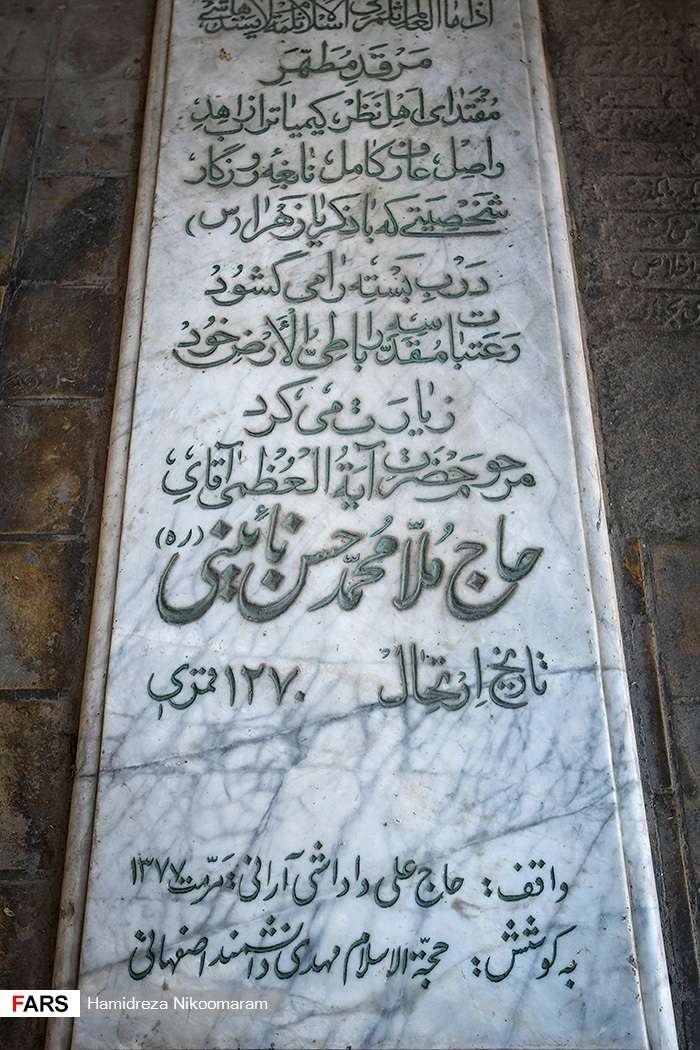 اذا مات العالم ثلم فی الاسلام ثلمة لا یسدها شیء
مرقد مطهّر
مقتدای اهل نظر، کیمیا تراب زاهد
واصل، عارف کامل، نابغه روزگار
شخصیتی که با ذکر یا زهرا (س)
درب بسته را می گشود
و عتبات مقدسه را باطیّ الأرض خود
زیارت می کرد
مرحوم حضرت آیة العظمی آقای
حاج ملّا محمّد حسن نائینی (ره)
تاریخ ارتحال ۱۲۷۰ قمری
واقف: حاج علی داداشی آرانی: مرمت ۱۳۷۷
به کوشش: حجة الاسلام مهدی دانشمند اصفهانی
FARS Hamidreza Nikoomaram